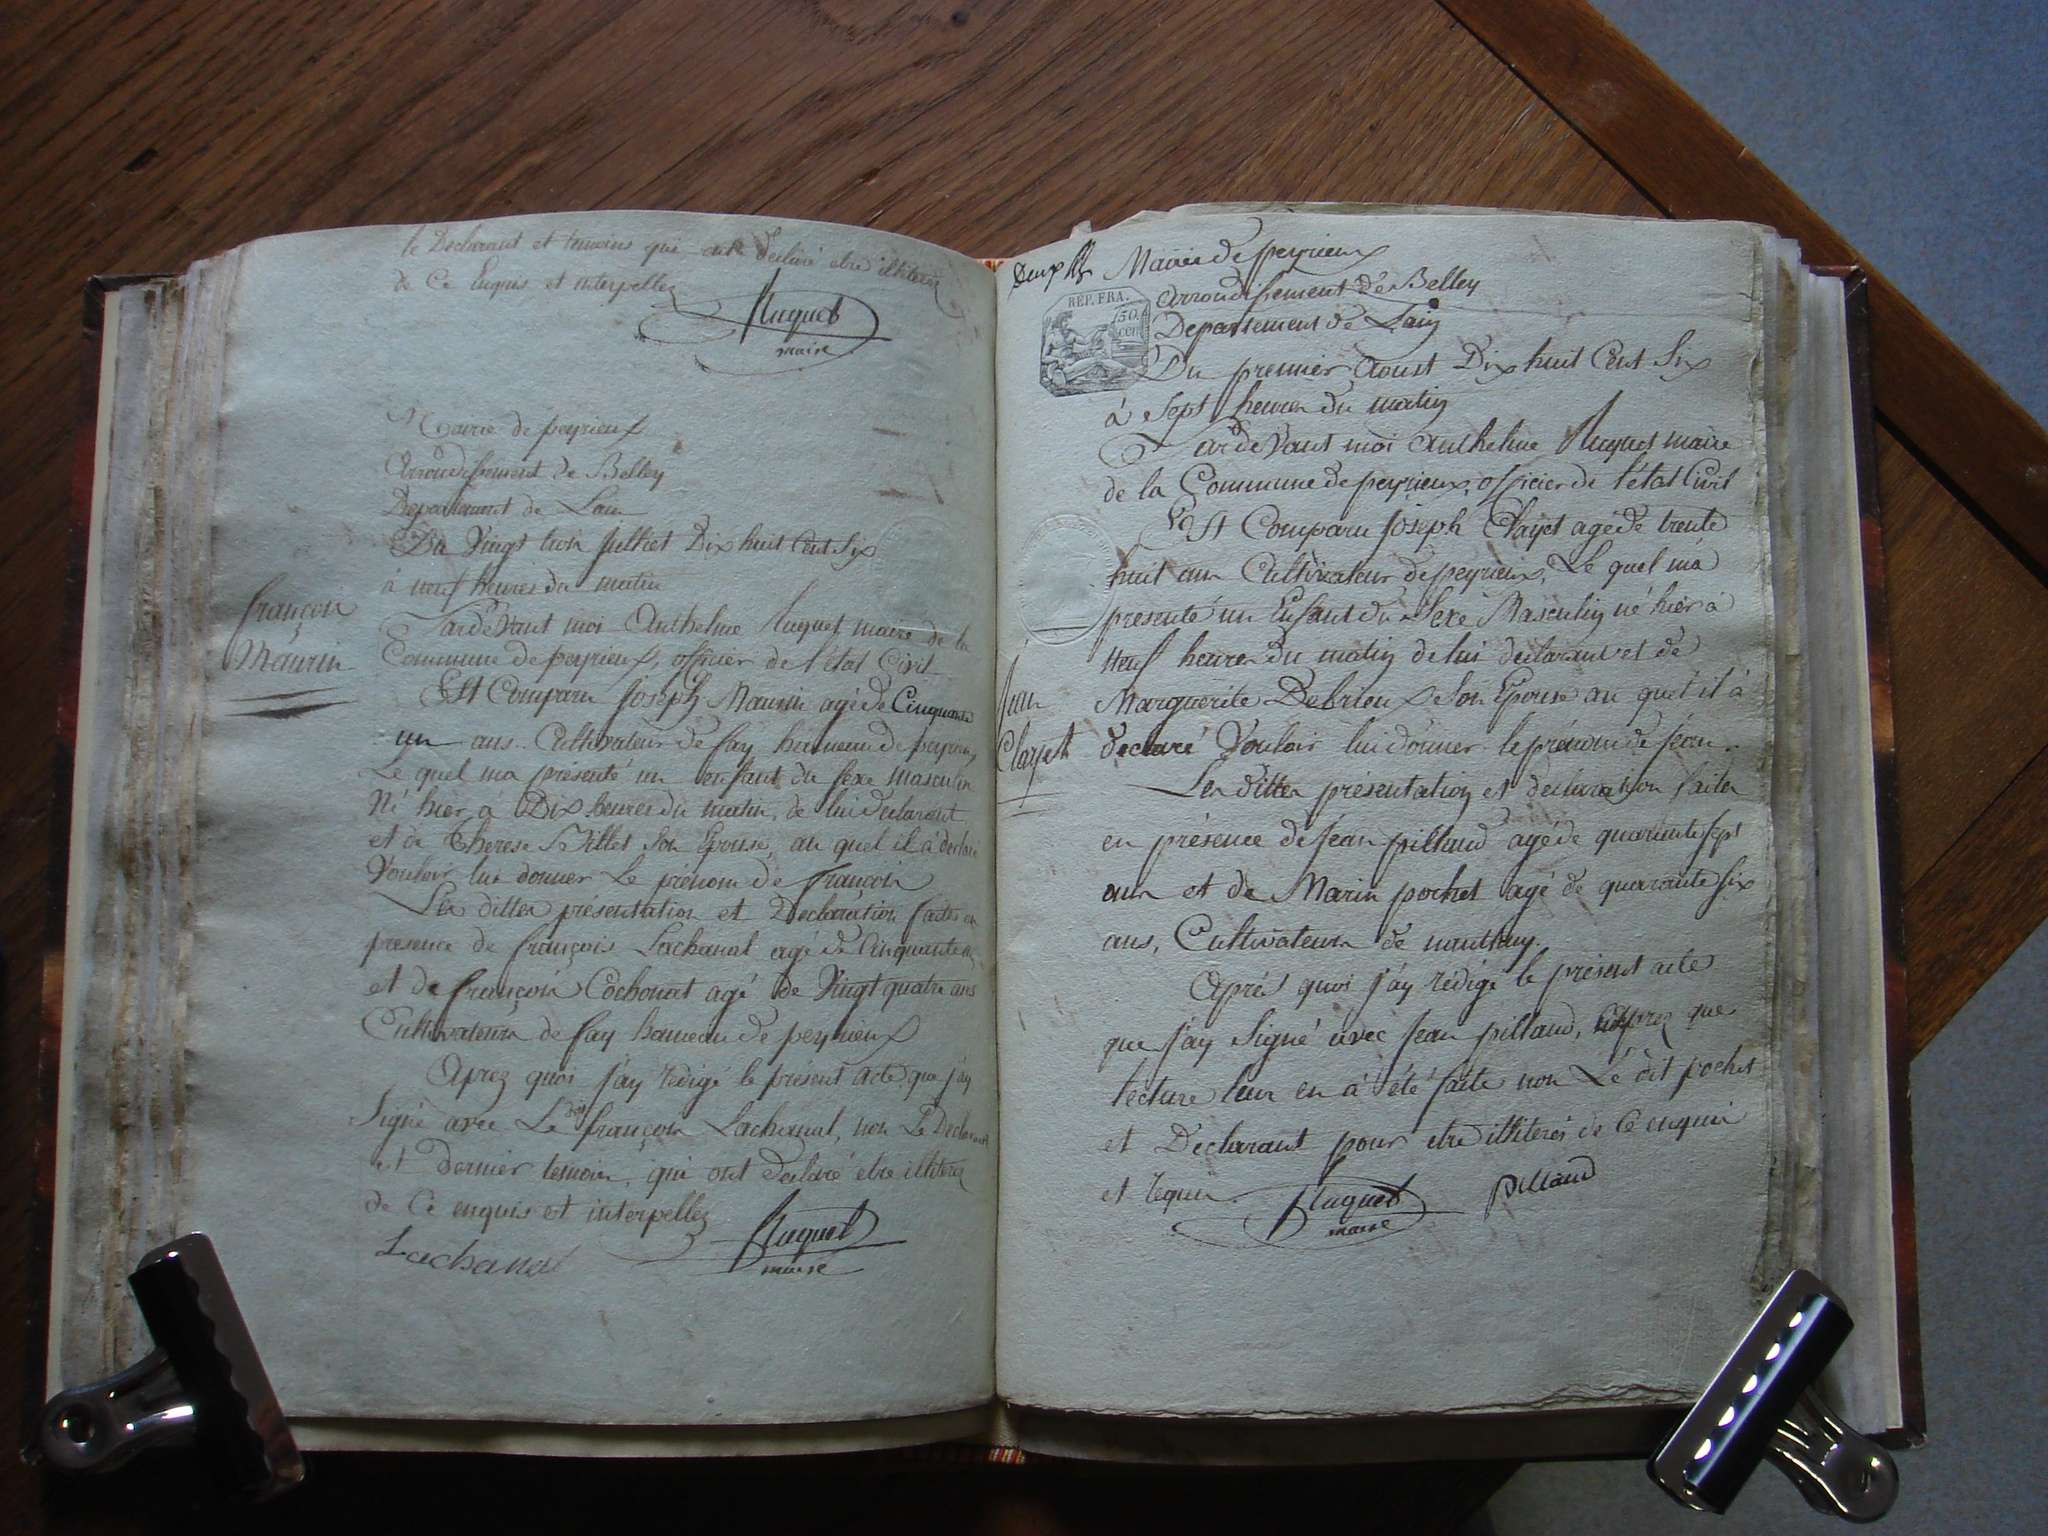 le Declarant et temoins qui ont declaré etre illiterés
de Ce Enquis et interpellez
Huguet
maire
Mairie de peyrieux
Arrondissement de Belley
Departement de Lain
Du Vingt trois Juillet Dix huit Cent Six
à neuf heures du matin
françois
Maurin
Pardevant moi Anthelme Huguet maire de la
Commune de peyrieux, officier de l'état Civil
Est Comparu Joseph Maurin agé de Cinquante
un ans Cultivateur de fay hameau de peyrieux
Le quel ma présenté un enfant du sexe masculin
Né hier à Dix heures du matin, de lui declarant
et de Therese Billet Son Epouse, au quel il à declaré
Vouloir lui donner Le prénom de françois
Les dittes présentation et Declaration faites en
presence de françois Lachanal agé de Cinquante
et de françois Cochonat agé de Vingt quatre ans
Cultivateurs de fay hameau de peyrieux
Aprez quoi j'ay rédigé le présent acte que j'ay
Signé avec Le dit françois Lachanal, non Le Declarant
et dernier temoin, qui ont declaré etre illiterés
de Ce enquis et interpellez
Lachanal
Huguet
maire
Mairie de peyrieux
REP. FRA.
50.
cen
Arrondissement de Belley
Departement de Lain
Du premier Aoust Dix huit Cent Six
à Sept heures du matin
Pardevant moi Anthelme Huguet maire
de la Commune de peyrieux, officier de l'état Civil
Est Comparu Joseph Clayet agé de trente
huit ans Cultivateur de peyrieux, Le quel mà
présenté un Enfant du Sexe Masculin né hier à
neuf heures du matin de lui declarant et de
Jean
Clayet
Marguerite Debrieux Son Epouse au quel il à
declaré Vouloir lui donner le prénom de Jean.
Les dittes présentation et declaration faites
en présence de Jean pillaud agé de quarante sept
ans et de Marin pochet agé de quarante six
ans, Cultivateurs de nanthuy.
Aprés quoi j'ay rédigé le présent acte
que j'ay Signé avec Jean pillaud, aprez que
lecture leur en à été faite non Le dit pochet
et Declarant pour etre illiterés de Ce enquis
et requis.
Huguet
maire
pillaud